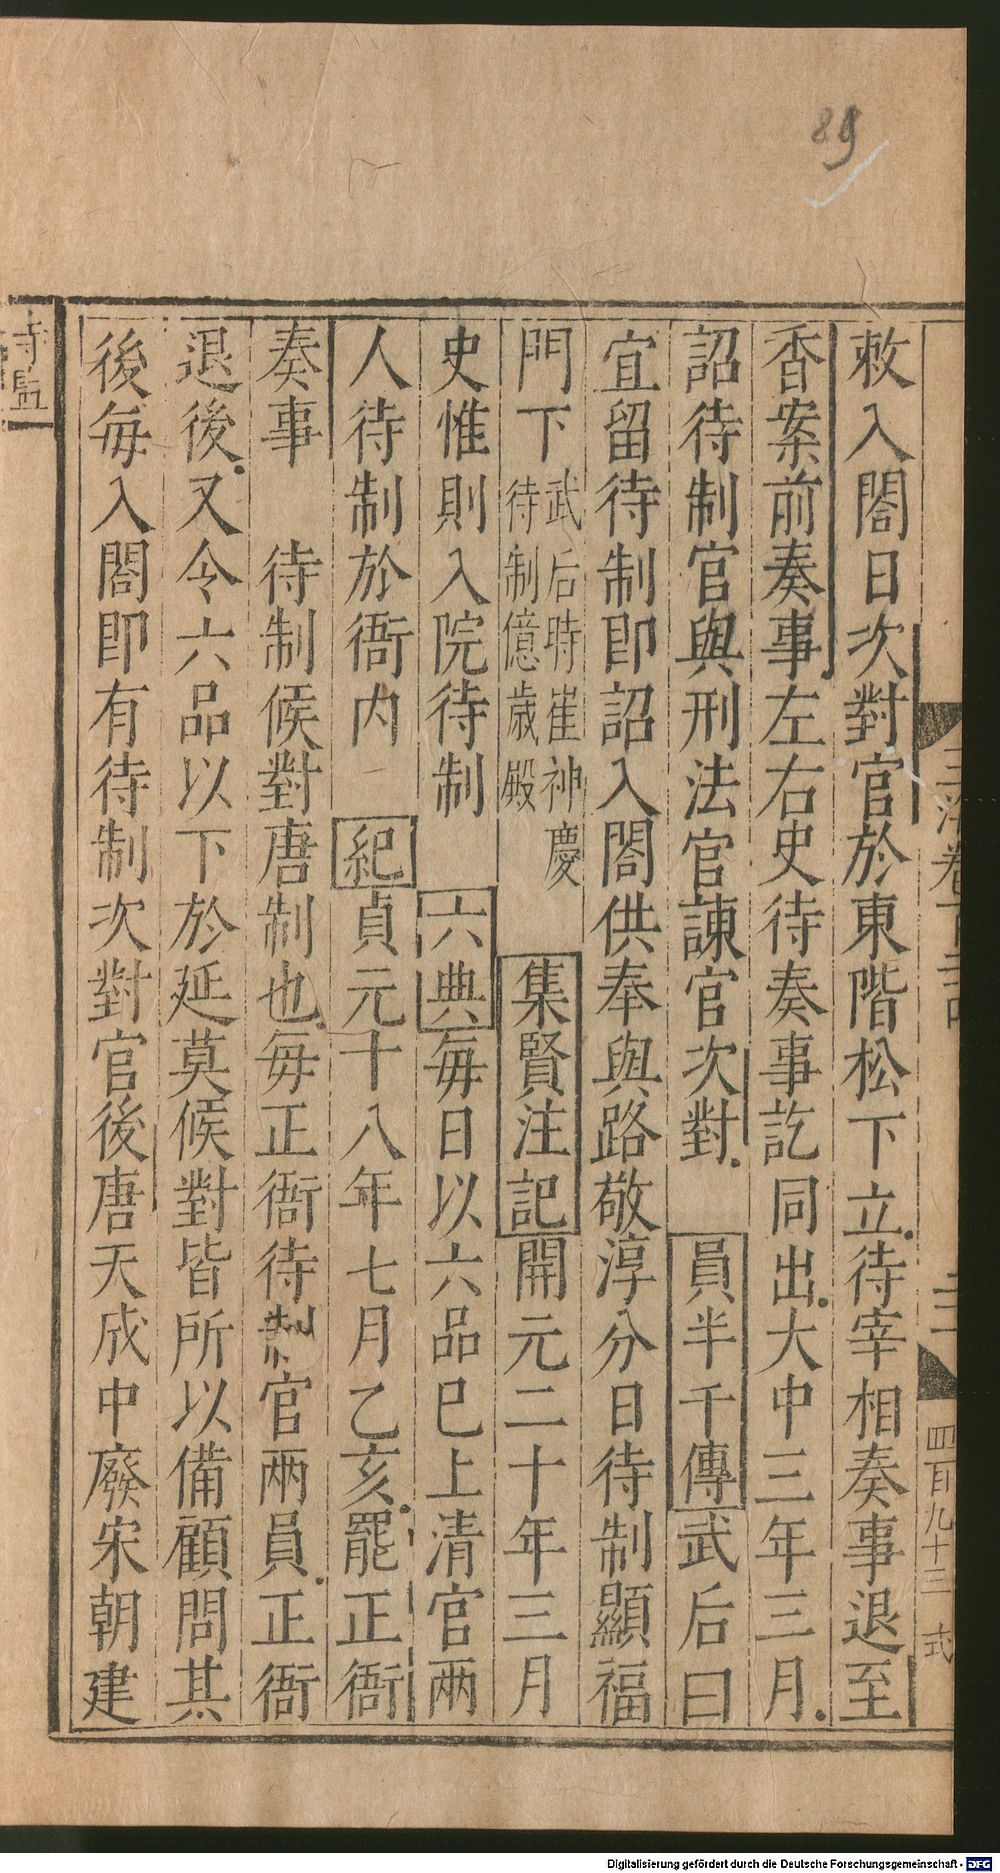 89
敕入閤日次對官於東階松下立待宰相奏事退至
香案前奏事左右史待奏事訖同出大中三年三月
詔待制官與刑法官諫官次對　員半千傳武后曰
宜留待制即詔入閤供奉與路敬淳分日待制顯福
門下武后時崔神慶待制億歲殿　集賢注記開元二十年三月
史惟則入院待制　六典每日以六品已上清官兩
人待制於衙内　紀貞元十八年七月乙亥罷正衙
奏事　待制候對唐制也每正衙待制官兩員正衙
退後又令六品以下於延莫候對皆所以備顧問其
後每入閤即有待制次對官後唐天成中廢宋朝建
寺監
四百九十三　弍
Digitalisierung gefördert durch die Deutsche Forschungsgemeinschaft - DFG